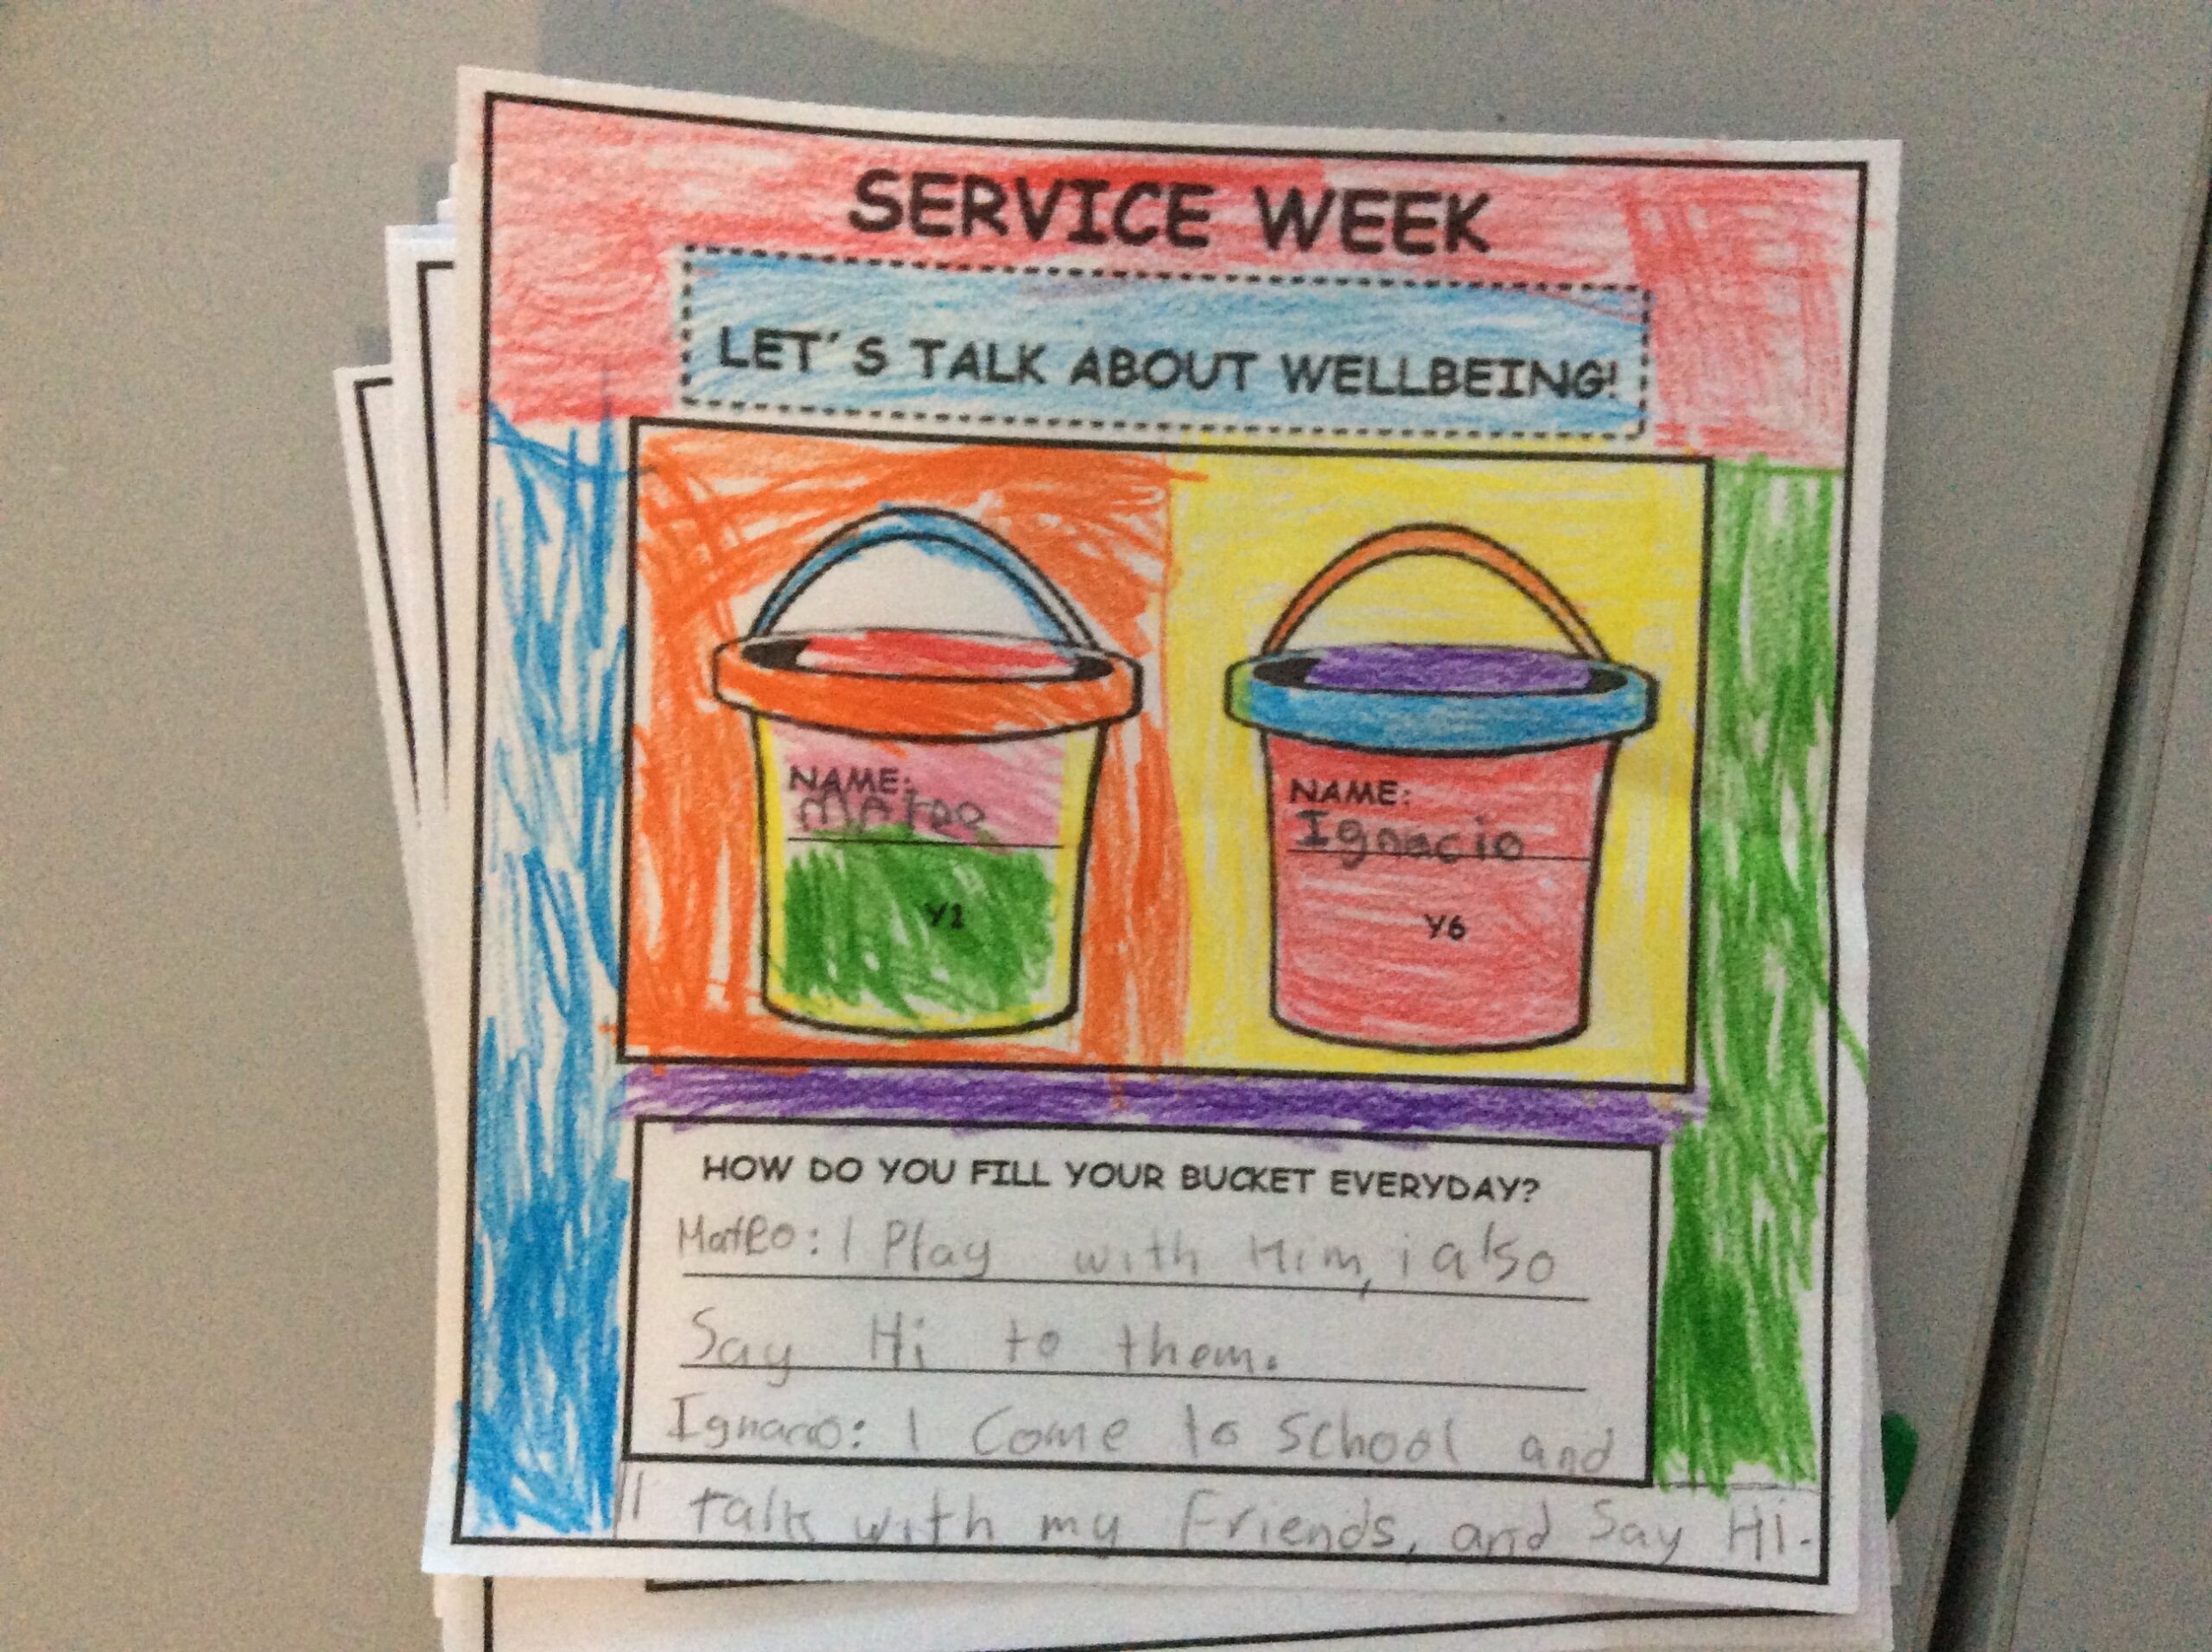 SERVICE WEEK
LET´S TALK ABOUT WELLBEING!
NAME:
Mateo
Y1
NAME:
Ignacio
Y6
HOW DO YOU FILL YOUR BUCKET EVERYDAY?
Mateo: I Play with Him, i also
Say Hi to them.
Ignacio: I Come to School and
I talk with my Friends, and Say Hi.